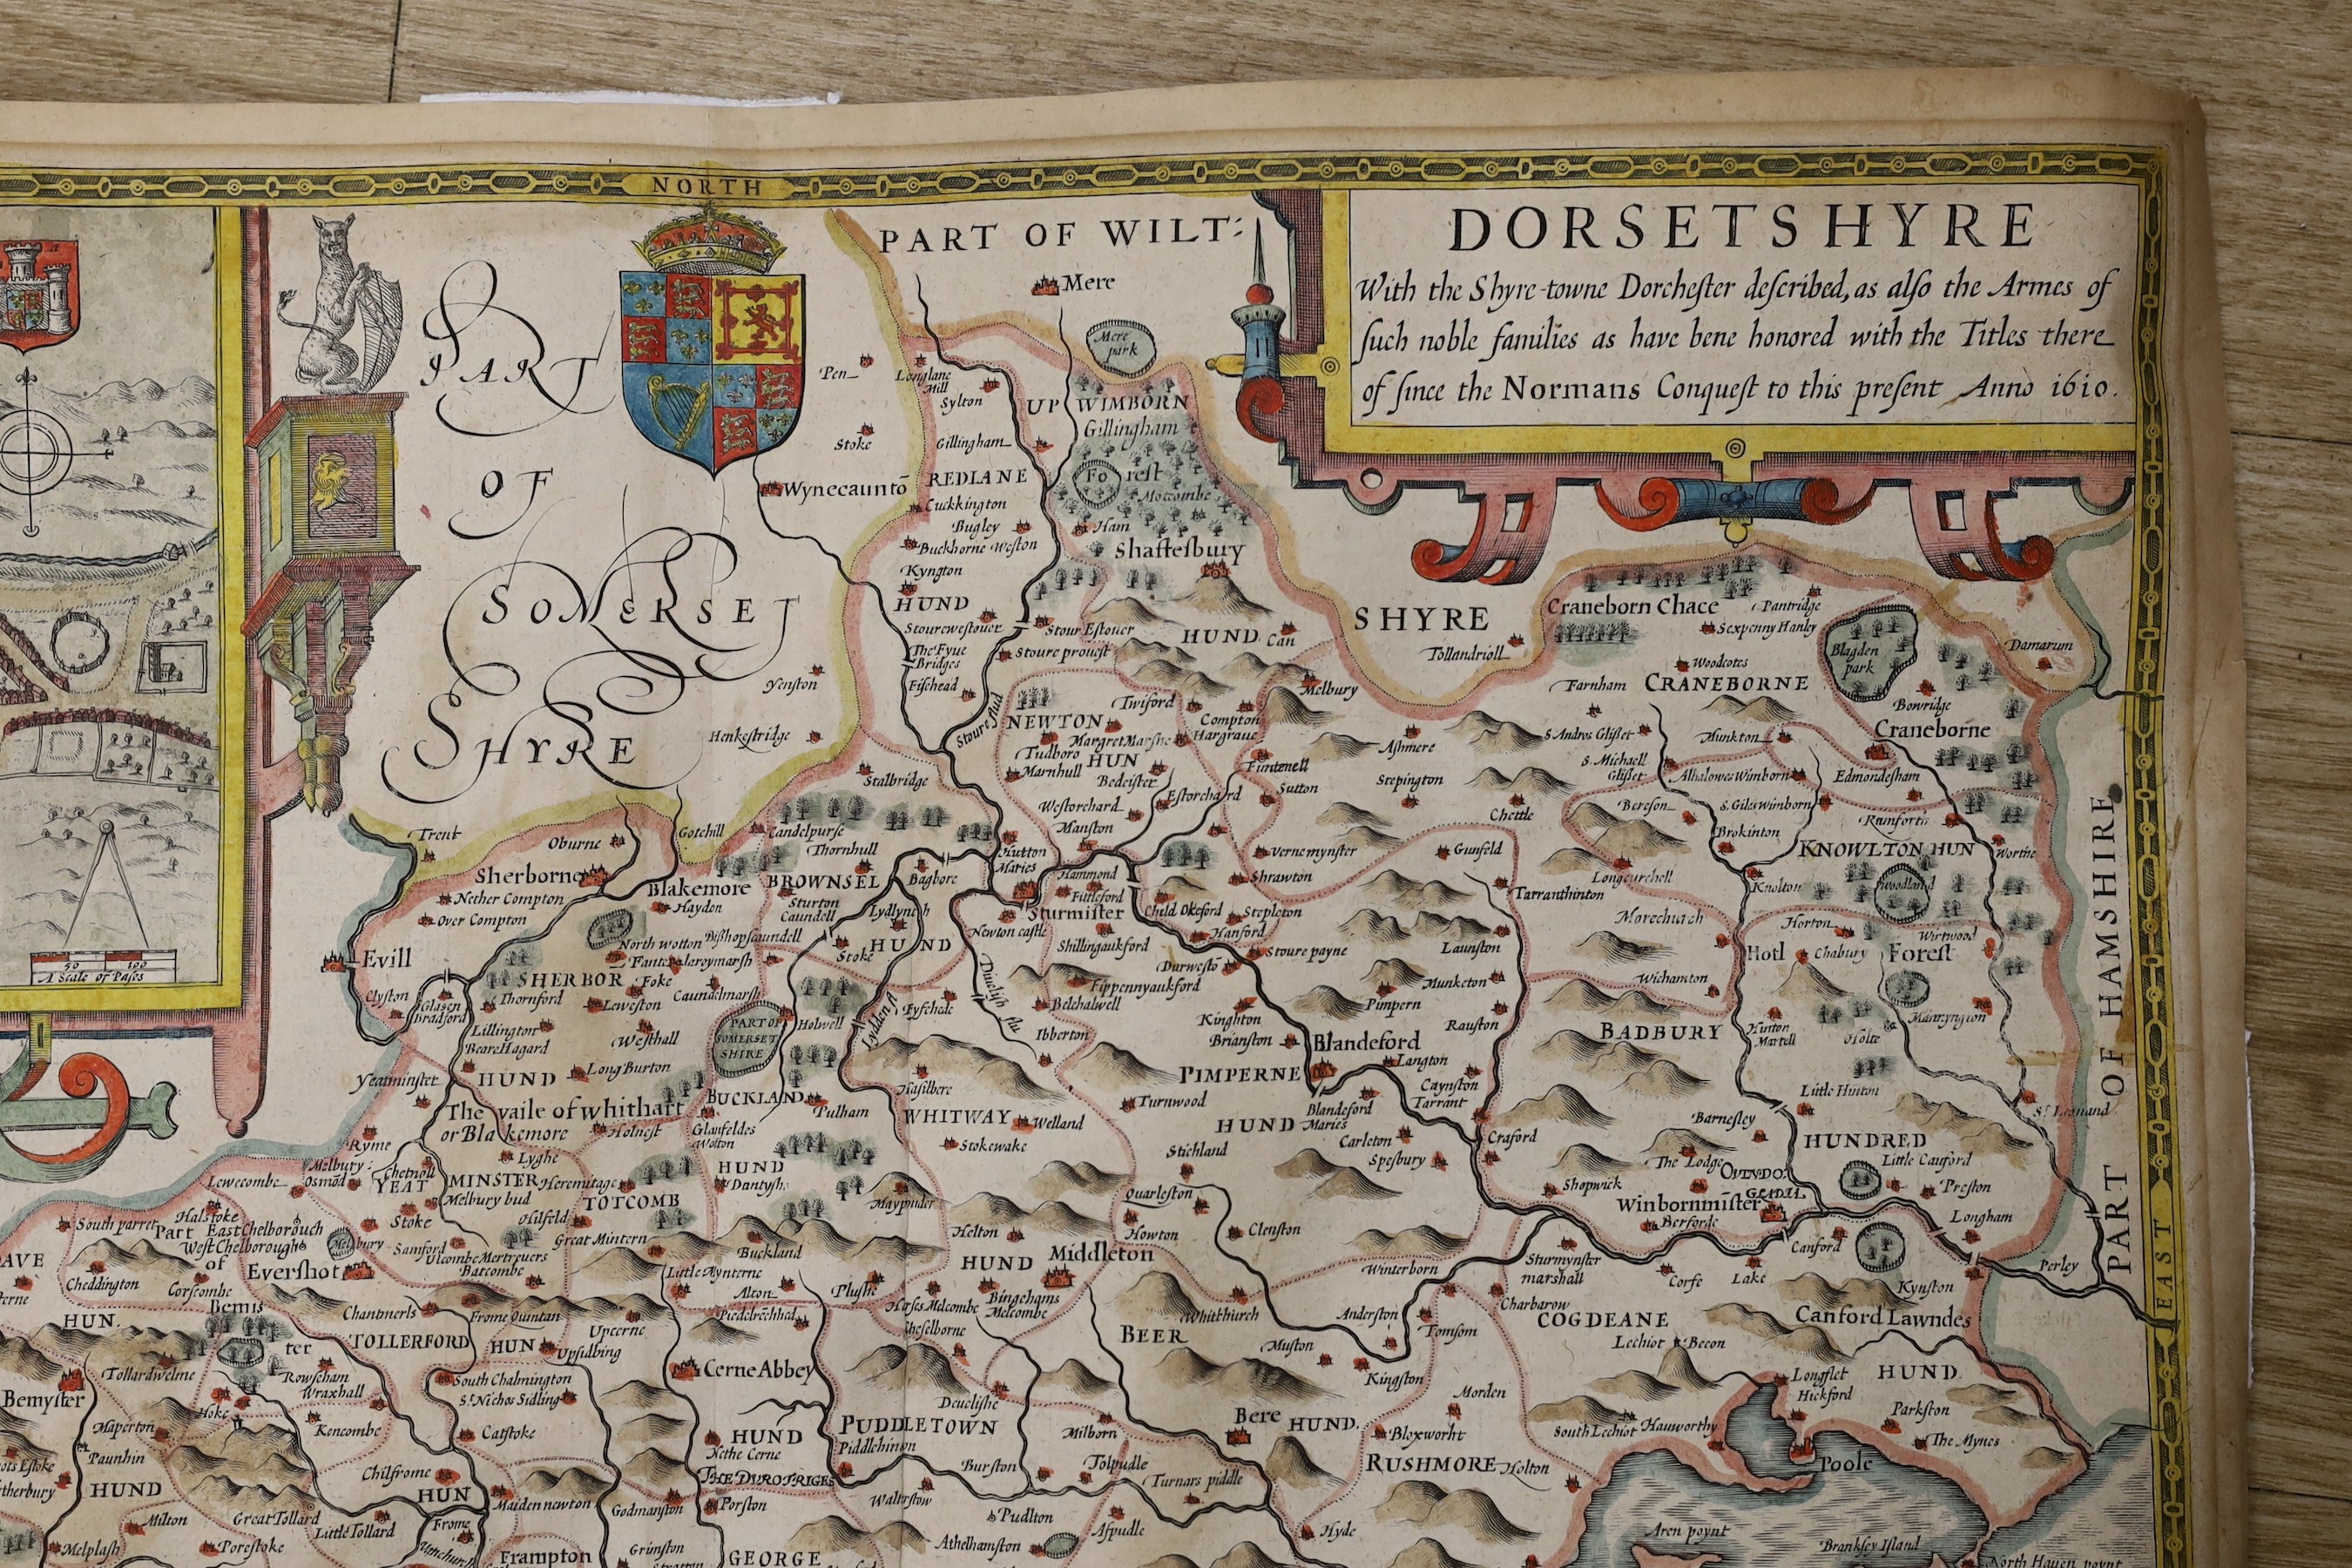 NORTH
PART OF WILT:
SHYRE
DORSETSHYRE
With the Shyre-towne Dorchester described, as also the Armes of
such noble families as have bene honored with the Titles there
of since the Normans Conquest to this present Anno 1610.
PART
OF
SOMERSET
SHYRE
A Scale of Pases
50 100
Mere
Mere
park
Pen
Longlane
Hill
Sylton
UP WIMBORN
Gillingham
Forest
Motcombe
Stoke
Gillingham
Wynecaunto
REDLANE
Cuckkington
Bugley
Ham
Buckhorne Weston
Shaftesbury
Kyngton
HUND
Stourewestouer
Stour Estouer
HUND
Can
The Fyue
Bridges
Stoure prouest
Fifehead
Yenston
Melbury
Tollandrioll
Craneborn Chace
Pantridge
Sexpenny Hanley
Blagden
park
Damarum
Woodcotes
Farnham
CRANEBORNE
Bowridge
Craneborne
Henkestridge
Stoure flud
NEWTON
Twiford
Compton
Hargraue
Tudboro
Margret Marshe
HUN
Marnhull
Bedcister
Fintenell
Ashmere
Stepington
S. Andros Glisset
Munkton
S. Michaell
Glisset
Alhalowes Wimborn
Edmondesham
Stalbridge
Westorchard
Estorchard
Sutton
Chettle
Bereson
S. Giles Wimborn
Manston
Brokinton
Trent
Oburne
Gotehill
Candelpurse
Thornhull
Hutton
Maries
Vernemynster
Gunfeld
KNOWLTON HUN
Worthe
Sherborne
Blakemore
BROWNSEL
Bagbore
Hammond
Shrawton
Longcurchell
Knolton
Woodland
Nether Compton
Hayden
Sturton
Caundell
Lydlynch
Futleford
Tarranthinton
Over Compton
Newton castle
Sturmister
Child Okeford
Stepleton
Morechurch
Horton
North wotton
Bishopscaundell
HUND
Shillingaukford
Hanford
Wirtwood
Evill
Stoke
Stoure payne
Launston
Hotl
Chabury
Forest
SHERBOR
Foke
Durwesto
Fippennyaukford
Munketon
Wichamton
Clyston
Glasen
bradford
Thornford
Leweston
Caundelmarsh
Divelish flu
Belchalwell
Pimpern
Lillington
Westhall
PART OF
SOMERSET
SHIRE
Holwell
Lydden
Fyfehede
Ibberton
Kinghton
Rauston
BADBURY
Hinton
Martell
Holte
Beare Hagard
Brianston
Blandeford
Langton
Yeatminster
HUND
Long Burton
Hasilbere
PIMPERNE
Caynston
Tarrant
Little Hinton
The vaile of whithart
or Blakemore
BUCKLAND
Pulham
WHITWAY
Welland
Turnwood
Blandeford
Maries
HUND
Barnesley
St Leonard
Holnest
Glanfeldes
Wotton
Stokewake
Stichland
Carleton
Craford
HUNDRED
Ryme
Lyghe
HUND
Spesbury
The Lodge
Little Canford
Melbury
Osmod
Chetnoll
YEAT MINSTER
Melbury bud
Heremitage
TOTCOMB
Maypuder
Quarleston
Shopwick
Winbornmister
Preston
Lewecombe
Halstoke
Stoke
Hilfeld
Helton
Howton
Clenston
Berforde
Longham
South parret
Part
East Chelborouch
West Chelborough
of
Melbury
Samford
Great Mintern
Buckland
HUND
Middleton
Sturmynster
marshall
Canford
Perley
Cheddington
Evershot
Ulcombe Mertreuers
Batcombe
Little Mynterne
Winterborn
Corfe
Lake
Kynston
Corscombe
Bemis
ter
Chantnerls
Frome Quintan
Alton
Plushe
Bingehams
Melcombe
Whithurch
Anderston
Charbarow
COGDEANE
Canford Lawndes
HUN.
TOLLERFORD
HUN
Upcerne
Upsidbing
Piedelrechhed
Cheselborne
BEER
Muston
Tomsom
Lechiot
Becon
Tollardwelme
Rowseham
Wraxhall
South Chalmington
St Nichos Sidling
Cerne Abbey
Kingston
Longflet
Hickford
HUND.
Bemyster
Hoke
Deuelishe
Morden
Maperton
Kencombe
Catstoke
HUND
PUDDLETOWN
Milborn
Bere HUND.
Bloxworht
South Lechiot
Hauworthy
Parkston
Paunhin
Nethe Cerne
Piddlehinton
The Mynes
Chilfrome
THE DUROTRIGES
Burston
Tolpudle
RUSHMORE
Holton
Poole
HUND
HUN
Maiden newton
Godmanston
Porston
Walterstow
Turnars piddle
Milton
Great Tollard
Little Tollard
Frome
Pudlton
Aspudle
Hyde
Aren poynt
Melplash
Porestoke
Frampton
Grimston
GEORGE
Athelhamston
Branksey Island
North Haven poynt
PART OF HAMSHIRE
EAST